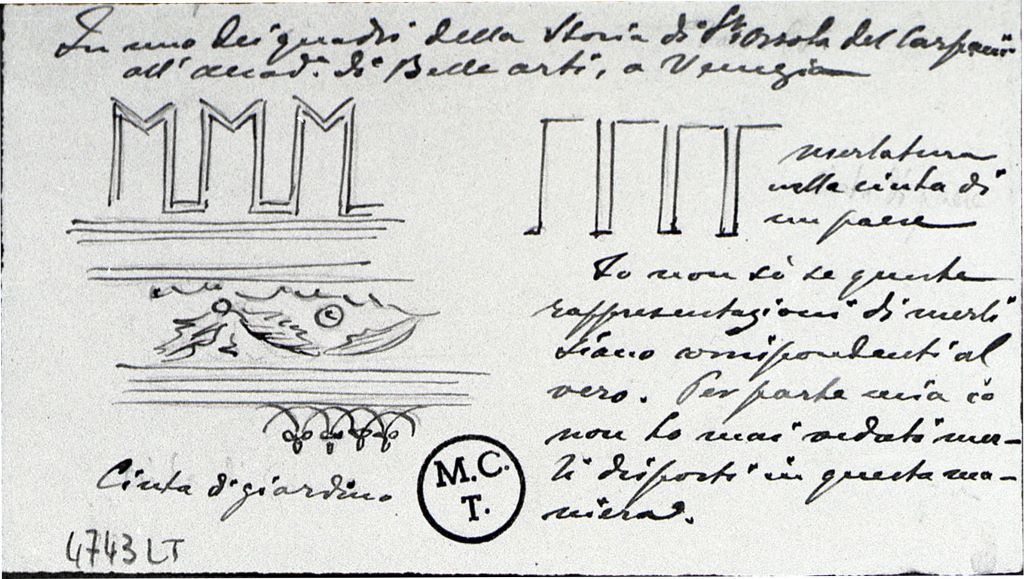 In uno dei quadri della Storia di Sta Orsola del Carpaccio
all'accad. di Belle arti, a Venezia
merlatura
nella cinta di
un paese
Io non sò se queste
rappresentazioni di merli
siano corrispondenti al
vero. Per parte mia io
non ho mai veduti mer-
li disposti in questa ma-
niera.
Cinta di giardino
M.C.
T.
©
4743 LT